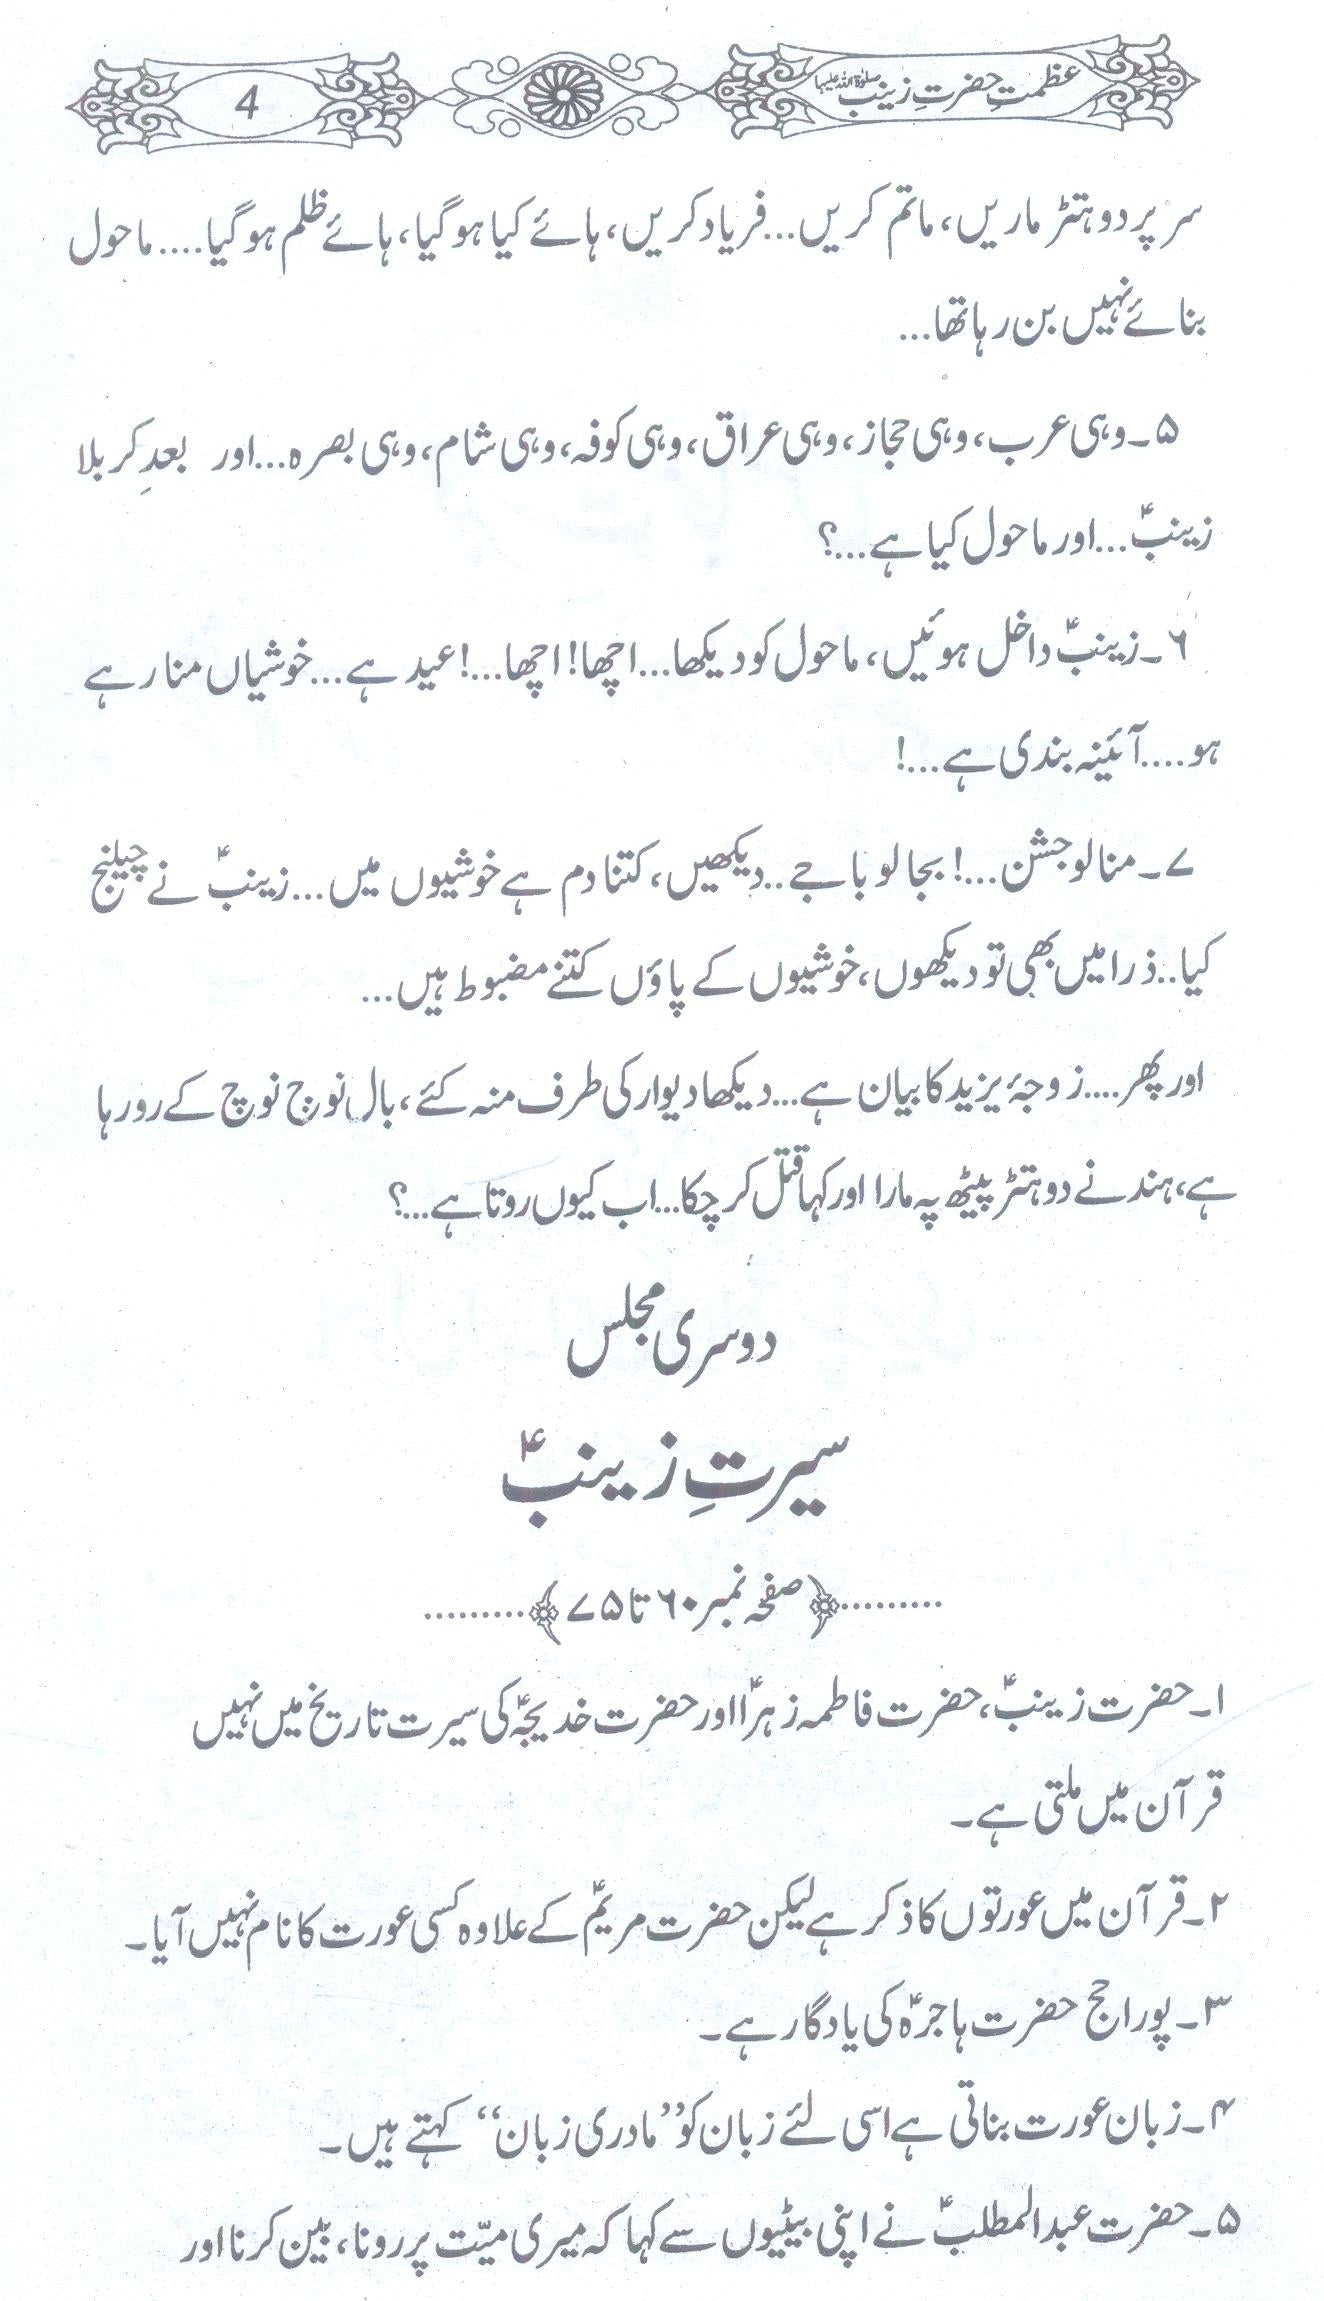 عظمتِ حضرتِ زینب صلوٰۃ اللہ علیہا
4
سر پر دوہتڑ ماریں، ماتم کریں...فریاد کریں، ہائے کیا ہوگیا، ہائے ظلم ہوگیا....ماحول
بنائے نہیں بن رہا تھا...
۵۔وہی عرب، وہی حجاز، وہی عراق، وہی کوفہ، وہی شام، وہی بصرہ...اور بعدِ کربلا
زینبؑ...اور ماحول کیا ہے...؟
۶۔زینبؑ داخل ہوئیں، ماحول کو دیکھا...اچھا! اچھا...! عید ہے...خوشیاں منا رہے
ہو....آئینہ بندی ہے...!
۷۔منالو جشن...! بجالو باجے..دیکھیں، کتنا دم ہے خوشیوں میں...زینبؑ نے چیلنج
کیا..ذرا میں بھی تو دیکھوں، خوشیوں کے پاؤں کتنے مضبوط ہیں...
اور پھر....زوجۂ یزید کا بیان ہے...دیکھا دیوار کی طرف منہ کئے، بال نوچ نوچ کے رو رہا
ہے، ہند نے دوہتڑ پیٹھ پہ مارا اور کہا قتل کر چکا...اب کیوں روتا ہے...؟
دوسری مجلس
سیرتِ زینبؑ
.........﴿صفحہ نمبر ۶۰ تا ۷۵﴾.........
۱۔حضرت زینبؑ، حضرت فاطمہ زہراؑ اور حضرت خدیجہؑ کی سیرت تاریخ میں نہیں
قرآن میں ملتی ہے۔
۲۔قرآن میں عورتوں کا ذکر ہے لیکن حضرت مریمؑ کے علاوہ کسی عورت کا نام نہیں آیا۔
۳۔پورا حج حضرت ہاجرہؑ کی یادگار ہے۔
۴۔زبان عورت بناتی ہے اسی لئے زبان کو ”مادری زبان“ کہتے ہیں۔
۵۔حضرت عبدالمطلبؑ نے اپنی بیٹیوں سے کہا کہ میری میّت پر رونا، بین کرنا اور